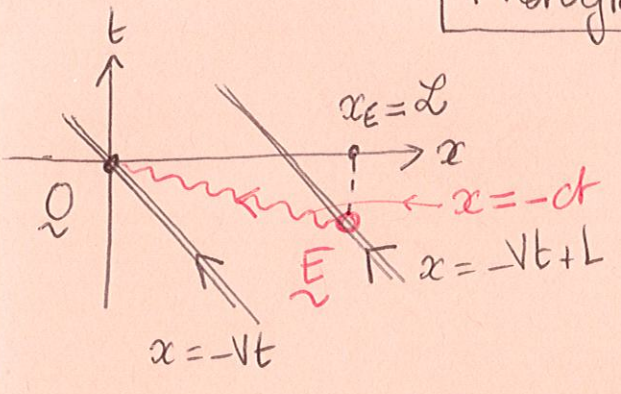 t
x_E = ℒ
x
O
x = -ct
E
x = -Vt + L
x = -Vt